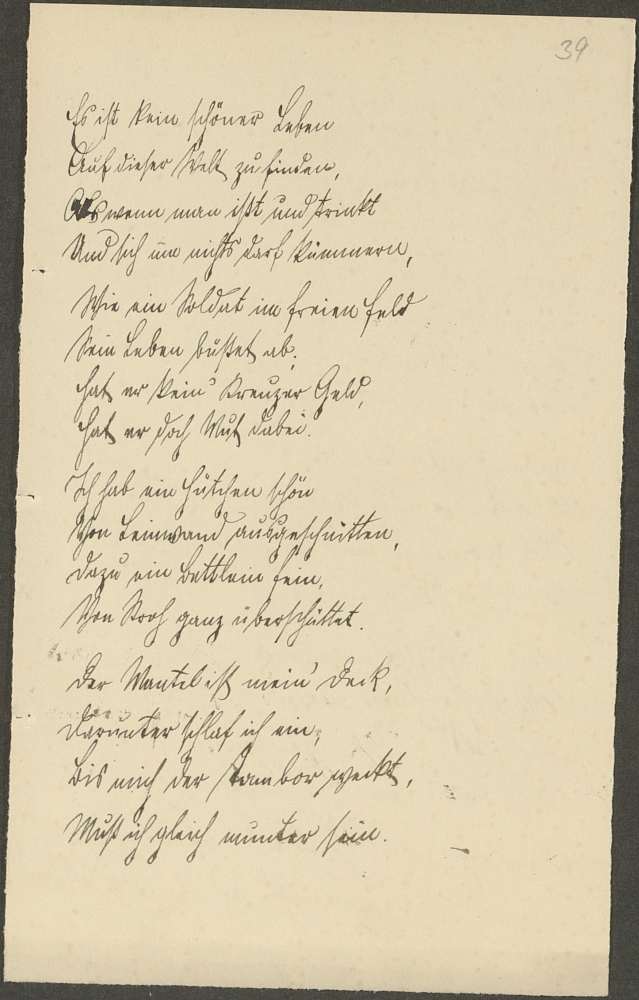 39
Es ist kein schöner Leben
Auf dieser Welt zu finden,
Als wenn man ißt und trinkt
Und sich um nichts darf kümmern,
Wie ein Soldat im freien Feld
Sein Leben büßet ab.
Hat er kein' Kreuzer Geld,
Hat er doch Mut dabei.
Ich hab ein Hütchen schön
Von Leinwand ausgeschnitten,
Dazu ein Bettlein fein,
Von Stroh ganz überschüttet.
Der Mantel ist mein' Deck,
Darunter schlaf ich ein,
Bis mich der Tambor weckt,
Muß ich gleich munter sein.